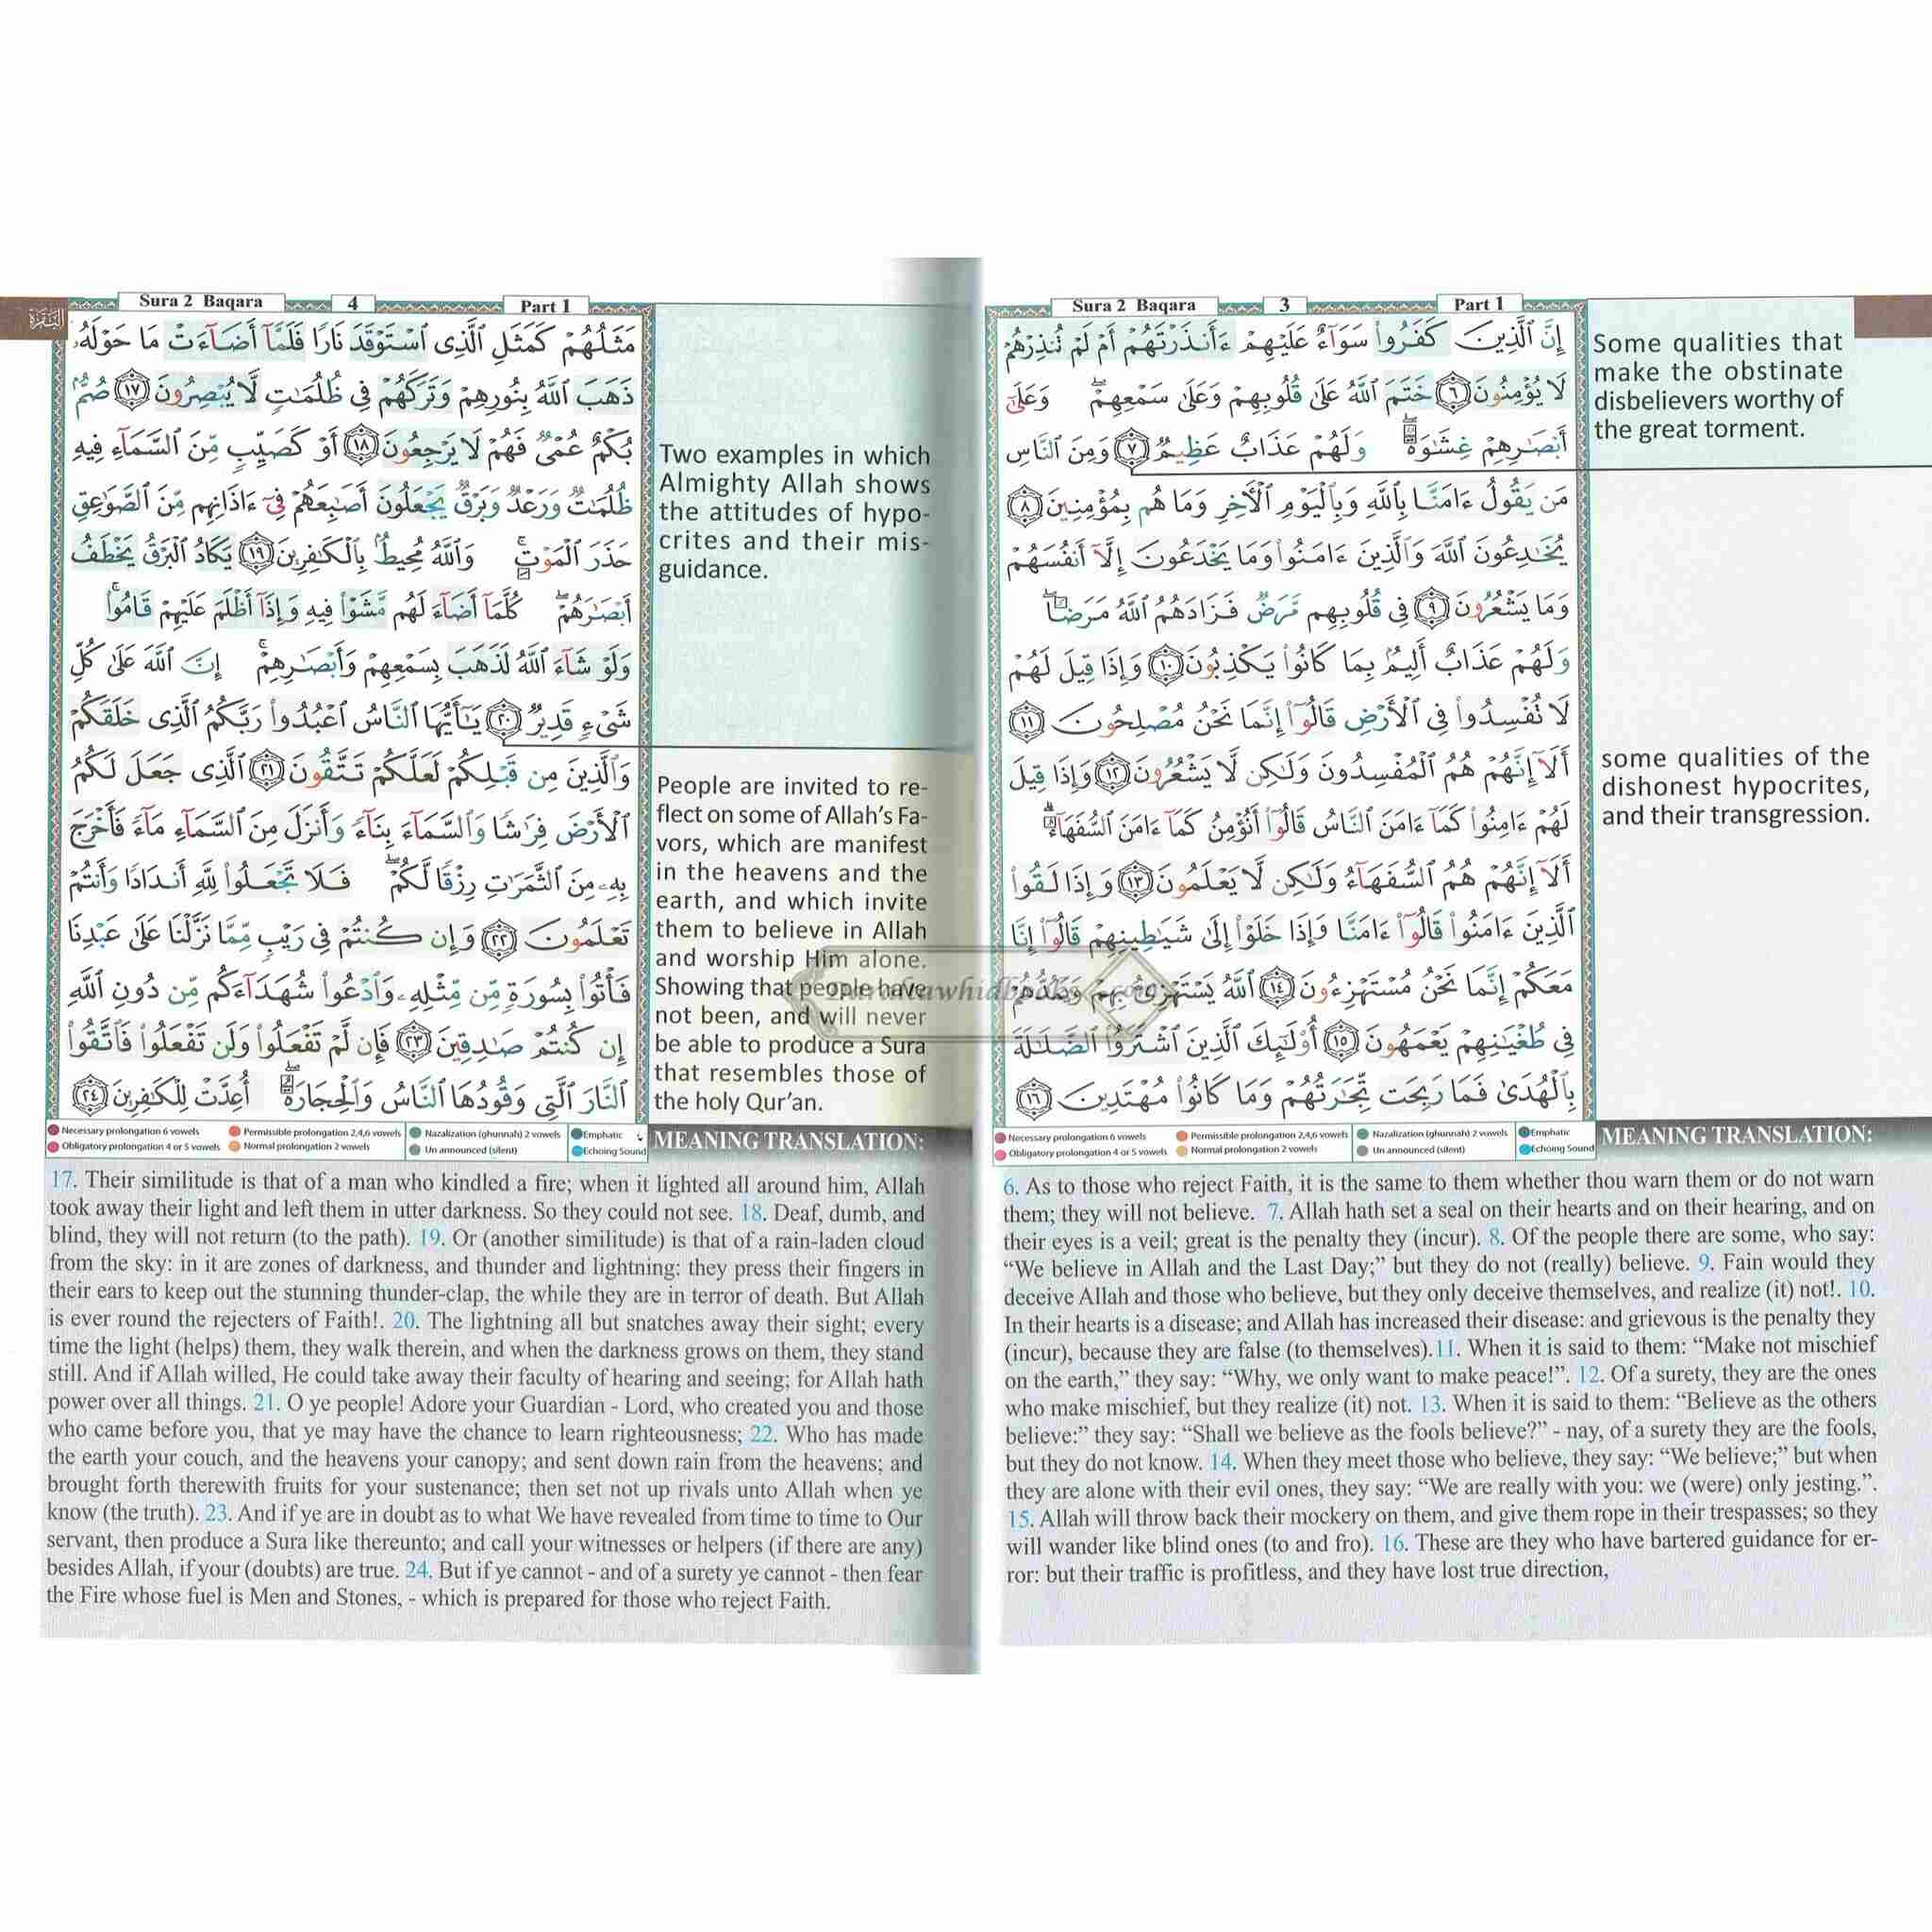 Sura 2 Baqara
3
Part 1
إِنَّ ٱلَّذِينَ كَفَرُوا۟ سَوَآءٌ عَلَيْهِمْ ءَأَنذَرْتَهُمْ أَمْ لَمْ تُنذِرْهُمْ
لَا يُؤْمِنُونَ ٦ خَتَمَ ٱللَّهُ عَلَىٰ قُلُوبِهِمْ وَعَلَىٰ سَمْعِهِمْ ۖ وَعَلَىٰٓ
أَبْصَٰرِهِمْ غِشَٰوَةٌ ۖ وَلَهُمْ عَذَابٌ عَظِيمٌ ٧ وَمِنَ ٱلنَّاسِ
مَن يَقُولُ ءَامَنَّا بِٱللَّهِ وَبِٱلْيَوْمِ ٱلْءَاخِرِ وَمَا هُم بِمُؤْمِنِينَ ٨
يُخَٰدِعُونَ ٱللَّهَ وَٱلَّذِينَ ءَامَنُوا۟ وَمَا يَخْدَعُونَ إِلَّآ أَنفُسَهُمْ
وَمَا يَشْعُرُونَ ٩ فِى قُلُوبِهِم مَّرَضٌ فَزَادَهُمُ ٱللَّهُ مَرَضًا ۖ
وَلَهُمْ عَذَابٌ أَلِيمٌۢ بِمَا كَانُوا۟ يَكْذِبُونَ ١٠ وَإِذَا قِيلَ لَهُمْ
لَا تُفْسِدُوا۟ فِى ٱلْأَرْضِ قَالُوٓا۟ إِنَّمَا نَحْنُ مُصْلِحُونَ ١١
أَلَآ إِنَّهُمْ هُمُ ٱلْمُفْسِدُونَ وَلَٰكِن لَّا يَشْعُرُونَ ١٢ وَإِذَا قِيلَ
لَهُمْ ءَامِنُوا۟ كَمَآ ءَامَنَ ٱلنَّاسُ قَالُوٓا۟ أَنُؤْمِنُ كَمَآ ءَامَنَ ٱلسُّفَهَآءُ ۗ
أَلَآ إِنَّهُمْ هُمُ ٱلسُّفَهَآءُ وَلَٰكِن لَّا يَعْلَمُونَ ١٣ وَإِذَا لَقُوا۟
ٱلَّذِينَ ءَامَنُوا۟ قَالُوٓا۟ ءَامَنَّا وَإِذَا خَلَوْا۟ إِلَىٰ شَيَٰطِينِهِمْ قَالُوٓا۟ إِنَّا
مَعَكُمْ إِنَّمَا نَحْنُ مُسْتَهْزِءُونَ ١٤ ٱللَّهُ يَسْتَهْزِئُ بِهِمْ وَيَمُدُّهُمْ
فِى طُغْيَٰنِهِمْ يَعْمَهُونَ ١٥ أُو۟لَٰٓئِكَ ٱلَّذِينَ ٱشْتَرَوُا۟ ٱلضَّلَٰلَةَ
بِٱلْهُدَىٰ فَمَا رَبِحَت تِّجَٰرَتُهُمْ وَمَا كَانُوا۟ مُهْتَدِينَ ١٦
Some qualities that
make the obstinate
disbelievers worthy of
the great torment.
some qualities of the
dishonest hypocrites,
and their transgression.
Necessary prolongation 6 vowels
Permissible prolongation 2,4,6 vowels
Nazalization (ghunnah) 2 vowels
Emphatic
Obligatory prolongation 4 or 5 vowels
Normal prolongation 2 vowels
Un announced (silent)
Echoing Sound
MEANING TRANSLATION:
6. As to those who reject Faith, it is the same to them whether thou warn them or do not warn
them; they will not believe. 7. Allah hath set a seal on their hearts and on their hearing, and on
their eyes is a veil; great is the penalty they (incur). 8. Of the people there are some, who say:
“We believe in Allah and the Last Day;” but they do not (really) believe. 9. Fain would they
deceive Allah and those who believe, but they only deceive themselves, and realize (it) not!. 10.
In their hearts is a disease; and Allah has increased their disease: and grievous is the penalty they
(incur), because they are false (to themselves).11. When it is said to them: “Make not mischief
on the earth,” they say: “Why, we only want to make peace!”. 12. Of a surety, they are the ones
who make mischief, but they realize (it) not. 13. When it is said to them: “Believe as the others
believe:” they say: “Shall we believe as the fools believe?” - nay, of a surety they are the fools,
but they do not know. 14. When they meet those who believe, they say: “We believe;” but when
they are alone with their evil ones, they say: “We are really with you: we (were) only jesting.”.
15. Allah will throw back their mockery on them, and give them rope in their trespasses; so they
will wander like blind ones (to and fro). 16. These are they who have bartered guidance for er-
ror: but their traffic is profitless, and they have lost true direction,
Sura 2 Baqara
4
Part 1
البقرة
مَثَلُهُمْ كَمَثَلِ ٱلَّذِى ٱسْتَوْقَدَ نَارًا فَلَمَّآ أَضَآءَتْ مَا حَوْلَهُۥ
ذَهَبَ ٱللَّهُ بِنُورِهِمْ وَتَرَكَهُمْ فِى ظُلُمَٰتٍ لَّا يُبْصِرُونَ ١٧ صُمٌّۢ
بُكْمٌ عُمْىٌ فَهُمْ لَا يَرْجِعُونَ ١٨ أَوْ كَصَيِّبٍ مِّنَ ٱلسَّمَآءِ فِيهِ
ظُلُمَٰتٌ وَرَعْدٌ وَبَرْقٌ يَجْعَلُونَ أَصَٰبِعَهُمْ فِىٓ ءَاذَانِهِم مِّنَ ٱلصَّوَٰعِقِ
حَذَرَ ٱلْمَوْتِ ۚ وَٱللَّهُ مُحِيطٌۢ بِٱلْكَٰفِرِينَ ١٩ يَكَادُ ٱلْبَرْقُ يَخْطَفُ
أَبْصَٰرَهُمْ ۖ كُلَّمَآ أَضَآءَ لَهُم مَّشَوْا۟ فِيهِ وَإِذَآ أَظْلَمَ عَلَيْهِمْ قَامُوا۟ ۚ
وَلَوْ شَآءَ ٱللَّهُ لَذَهَبَ بِسَمْعِهِمْ وَأَبْصَٰرِهِمْ ۚ إِنَّ ٱللَّهَ عَلَىٰ كُلِّ
شَىْءٍ قَدِيرٌ ٢٠ يَٰٓأَيُّهَا ٱلنَّاسُ ٱعْبُدُوا۟ رَبَّكُمُ ٱلَّذِى خَلَقَكُمْ
وَٱلَّذِينَ مِن قَبْلِكُمْ لَعَلَّكُمْ تَتَّقُونَ ٢١ ٱلَّذِى جَعَلَ لَكُمُ
ٱلْأَرْضَ فِرَٰشًا وَٱلسَّمَآءَ بِنَآءً وَأَنزَلَ مِنَ ٱلسَّمَآءِ مَآءً فَأَخْرَجَ
بِهِۦ مِنَ ٱلثَّمَرَٰتِ رِزْقًا لَّكُمْ ۖ فَلَا تَجْعَلُوا۟ لِلَّهِ أَندَادًا وَأَنتُمْ
تَعْلَمُونَ ٢٢ وَإِن كُنتُمْ فِى رَيْبٍ مِّمَّا نَزَّلْنَا عَلَىٰ عَبْدِنَا
فَأْتُوا۟ بِسُورَةٍ مِّن مِّثْلِهِۦ وَٱدْعُوا۟ شُهَدَآءَكُم مِّن دُونِ ٱللَّهِ
إِن كُنتُمْ صَٰدِقِينَ ٢٣ فَإِن لَّمْ تَفْعَلُوا۟ وَلَن تَفْعَلُوا۟ فَٱتَّقُوا۟
ٱلنَّارَ ٱلَّتِى وَقُودُهَا ٱلنَّاسُ وَٱلْحِجَارَةُ ۖ أُعِدَّتْ لِلْكَٰفِرِينَ ٢٤
Two examples in which
Almighty Allah shows
the attitudes of hypo-
crites and their mis-
guidance.
People are invited to re-
flect on some of Allah’s Fa-
vors, which are manifest
in the heavens and the
earth, and which invite
them to believe in Allah
and worship Him alone.
Showing that people have
not been, and will never
be able to produce a Sura
that resembles those of
the holy Qur’an.
Necessary prolongation 6 vowels
Permissible prolongation 2,4,6 vowels
Nazalization (ghunnah) 2 vowels
Emphatic
Obligatory prolongation 4 or 5 vowels
Normal prolongation 2 vowels
Un announced (silent)
Echoing Sound
MEANING TRANSLATION:
17. Their similitude is that of a man who kindled a fire; when it lighted all around him, Allah
took away their light and left them in utter darkness. So they could not see. 18. Deaf, dumb, and
blind, they will not return (to the path). 19. Or (another similitude) is that of a rain-laden cloud
from the sky: in it are zones of darkness, and thunder and lightning: they press their fingers in
their ears to keep out the stunning thunder-clap, the while they are in terror of death. But Allah
is ever round the rejecters of Faith!. 20. The lightning all but snatches away their sight; every
time the light (helps) them, they walk therein, and when the darkness grows on them, they stand
still. And if Allah willed, He could take away their faculty of hearing and seeing; for Allah hath
power over all things. 21. O ye people! Adore your Guardian - Lord, who created you and those
who came before you, that ye may have the chance to learn righteousness; 22. Who has made
the earth your couch, and the heavens your canopy; and sent down rain from the heavens; and
brought forth therewith fruits for your sustenance; then set not up rivals unto Allah when ye
know (the truth). 23. And if ye are in doubt as to what We have revealed from time to time to Our
servant, then produce a Sura like thereunto; and call your witnesses or helpers (if there are any)
besides Allah, if your (doubts) are true. 24. But if ye cannot - and of a surety ye cannot - then fear
the Fire whose fuel is Men and Stones, - which is prepared for those who reject Faith.